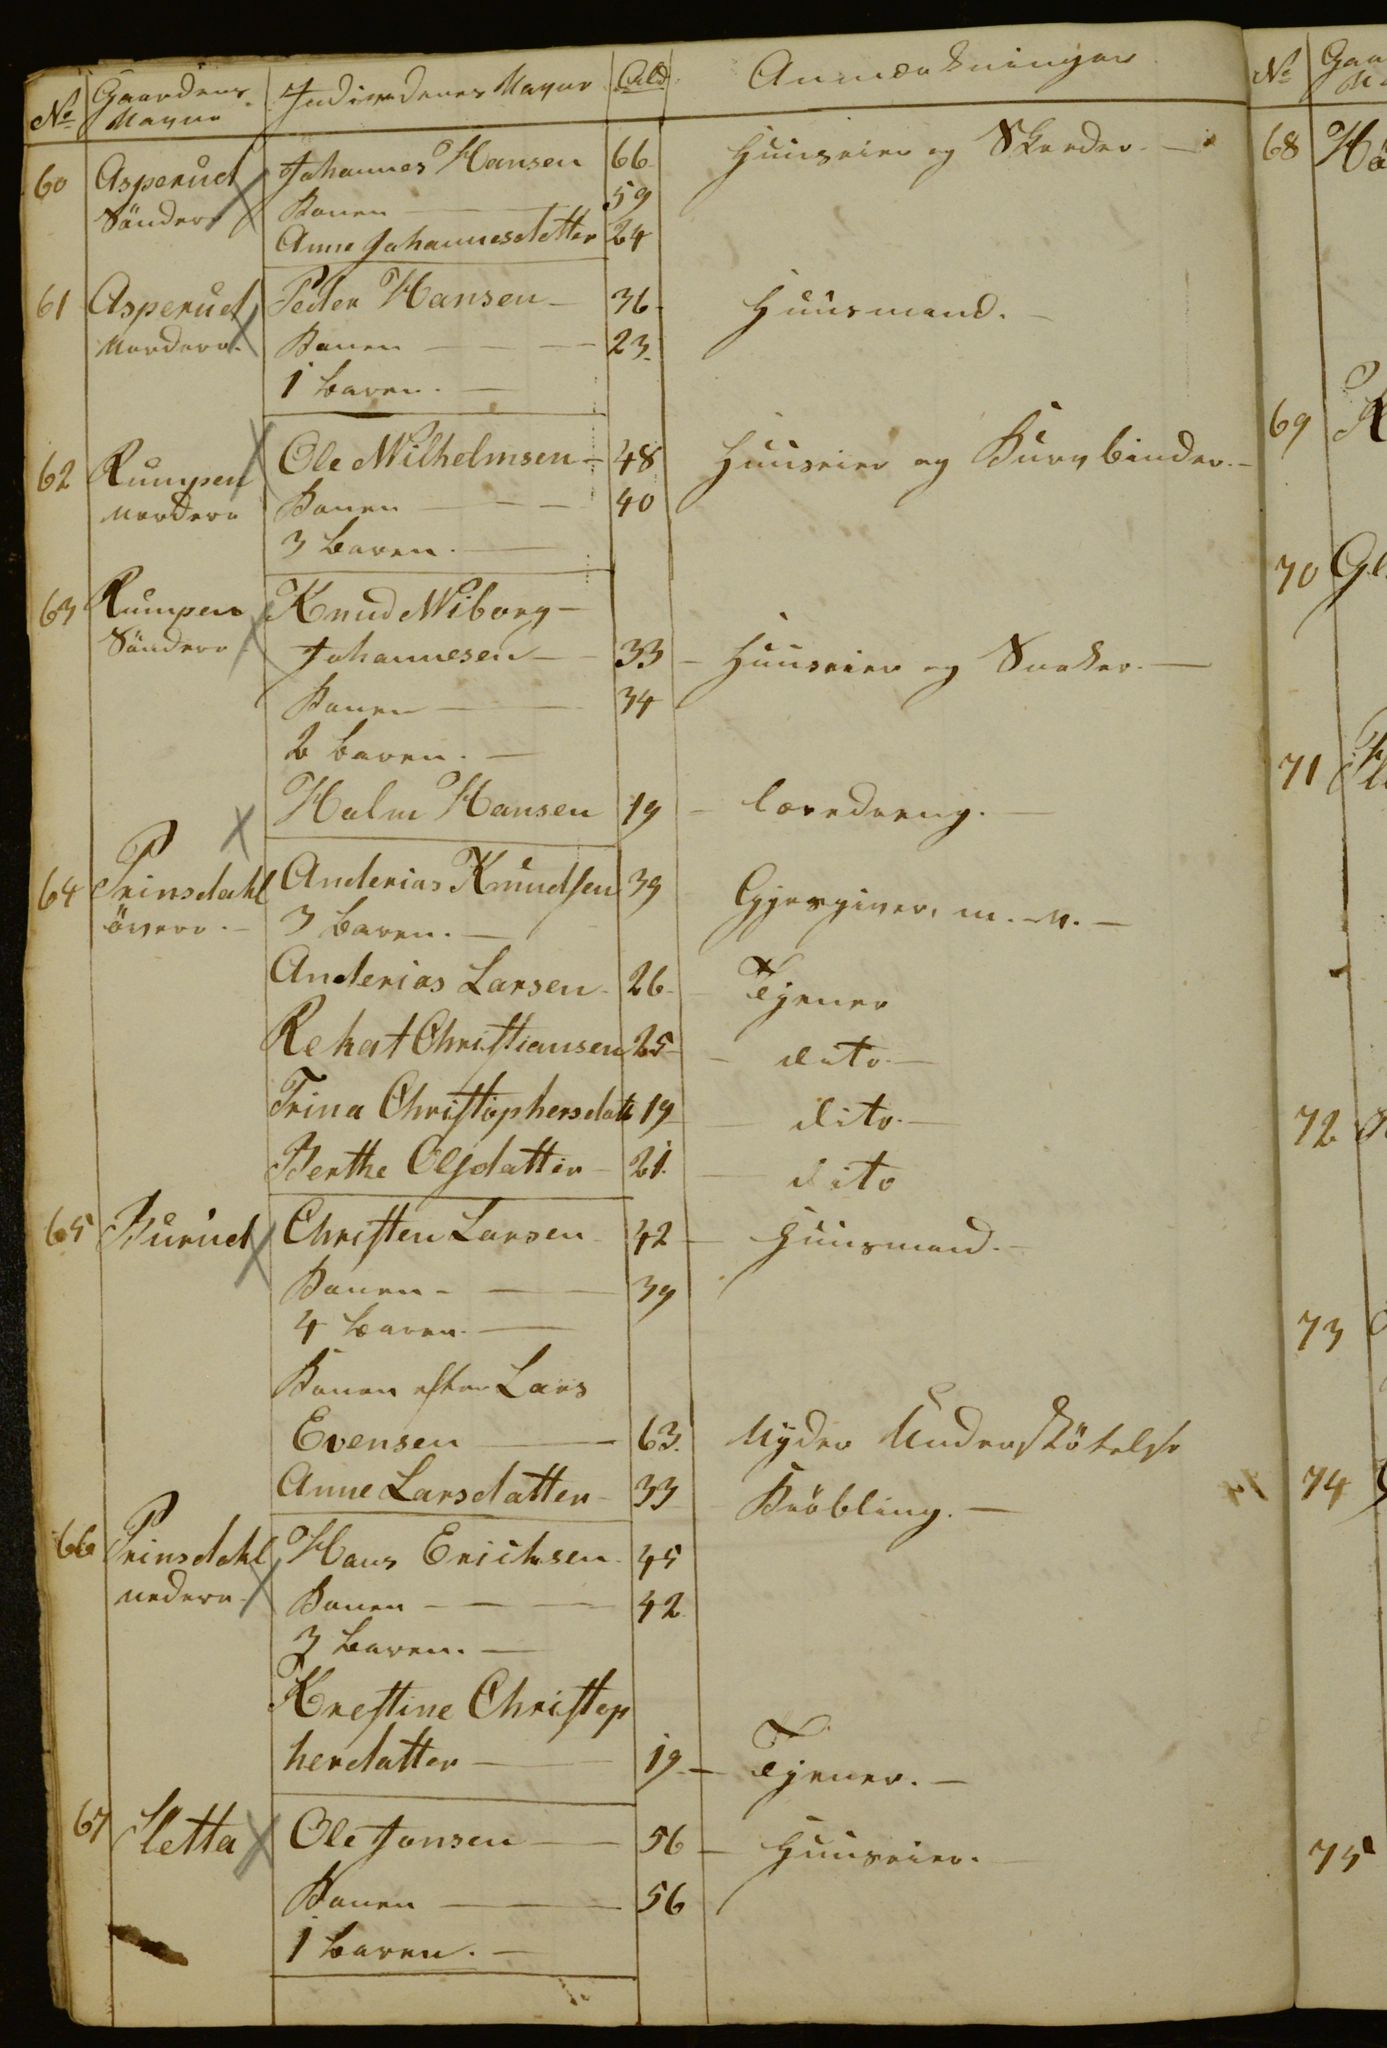 No Gaardens Navne Individenes Navne Ald Anmærkninger
60 Asperud Johannes Hansen 66 Huuseier og Skræder. —
Söndere Konen — 59
Anne Johannesdetter 24
61 Asperud Peder Hansen — 36 Huusmand. —
Nordere. Konen — — — 23
1 barn. —
62 Rumpen Ole Wilhelmsen — 48 Huuseier og Kurvbinder. —
Nordere Konen — — — 40
3 baren. —
63 Rumpen Knud Wiborg —
Söndere Johannesen — 33 — Huuseier og Sneker. —
Konen — — 34
2 baren. —
Halm Hansen 19 — læredreng. —
64 Prinsdahl Anderias Knudsen 39 Gjæsgiver, m. v. —
övere. — 3 baren. —
Anderias Larsen 26 — Tjener
Rekat Christiansen 25 — dito —
Trina Christophersdatt 19 — dito. —
Berthe Olsdatter — 21 — dito
65 Burud Christen Larsen 42 — Huusmand. —
Konen — — — 39
4 baren. —
Konen efter Lars
Evensen — 63. Nyder Understötelse
Anne Larsdatter — 33 Kröbling. —
66 Prinsdahl Hans Erichsen 45
nedere — Konen — — — 42
3 baren. —
Krestine Christop
herdatter — 19 — Tjener. —
67 Sletta Ole Jonsen — 56 — Huuseier. —
Konen — 56
1 baren. —
No Gaa
68 Hö
69 K
70 Gl
71 Fl
72
73
74
75